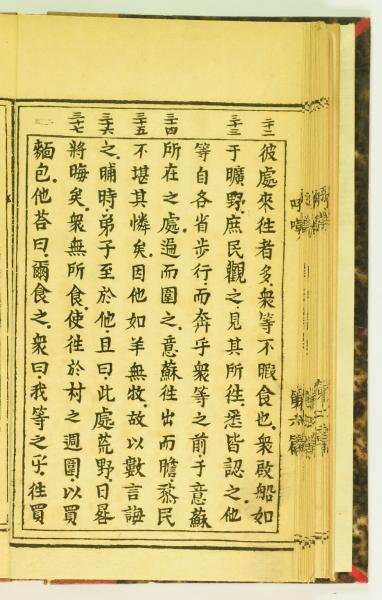 三十二 彼處來往者多.衆等不暇食也.衆啟船如
三十三 于曠野.庶民觀之見其所往.悉皆認之.他
等自各省步行.而奔乎衆等之前于意蘇
三十四 所在之處.遍而圍之.意蘇往出而瞻.民
三十五 不堪其憐矣.因他如羊無牧.故以數言誨
三十六 之.晡時.弟子至於他.且曰.此處荒野.日晷
三十七 將晦矣.衆無所食.使往於村之週圍.以買
麵包.他荅曰.爾食之.衆曰.我等之乎.往買
第六篇